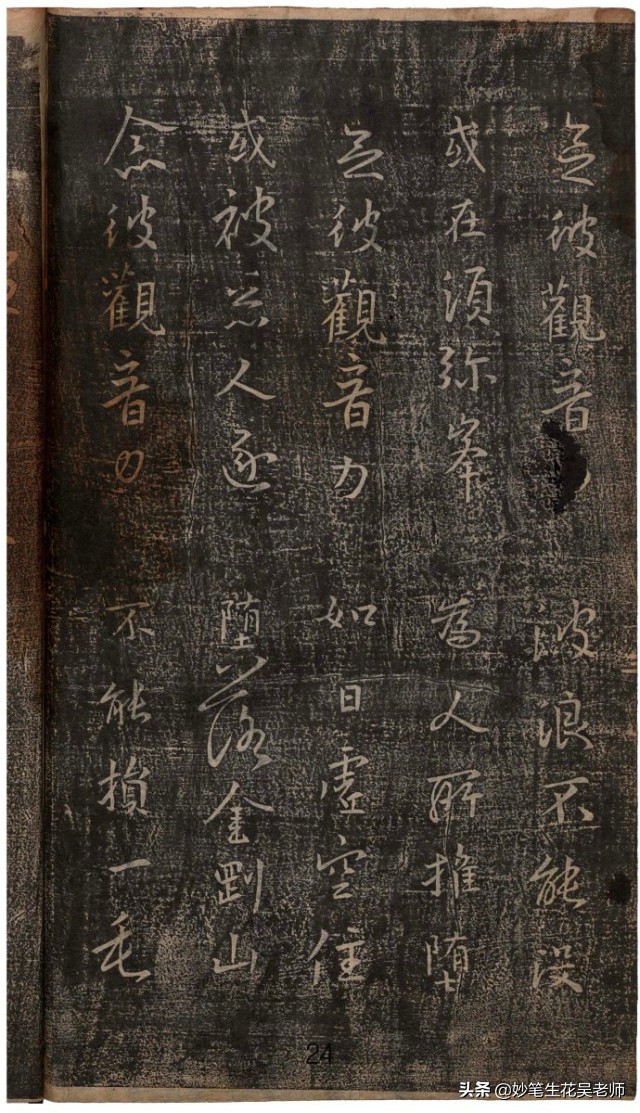 念彼觀音 波浪不能沒
或在須弥峯 為人所推堕
念彼觀音力 如日虛空住
或被惡人逐 堕落金剛山
念彼觀音力 不能損一毛
24
头条 @妙笔生花吴老师